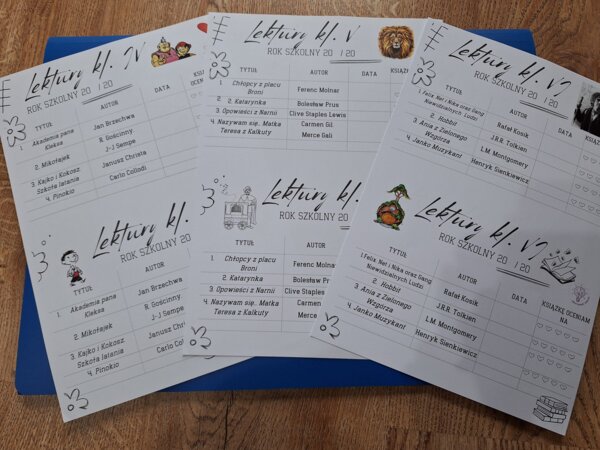 Lektury kl. IV
ROK SZKOLNY 20 / 20
TYTUŁ AUTOR DATA KSIĄŻKĘ
1. Akademia pana Kleksa Jan Brzechwa
2. Mikołajek R. Gościnny J-J Sempe
3. Kajko i Kokosz. Szkoła latania Janusz Christa
4. Pinokio Carlo Collodi
Lektury kl.
ROK SZKOLNY 20
TYTUŁ AUTOR
1. Akademia pana Kleksa Jan Brzechwa
2. Mikołajek R. Gościnny J-J Sempe
3. Kajko i Kokosz. Szkoła latania Janusz Christa
4. Pinokio Carlo Collodi
Lektury kl. V
ROK SZKOLNY 20 / 20
TYTUŁ AUTOR DATA KSIĄŻKĘ
1. Chłopcy z placu Broni Ferenc Molnar
2. 2. Katarynka Bolesław Prus
3. Opowieści z Narnii Clive Staples Lewis
4. Nazywam się.. Matka Teresa z Kalkuty Carmen Gil Merce Gali
Lektury kl.
ROK SZKOLNY 20
TYTUŁ AUTOR
1. Chłopcy z placu Broni Ferenc Molnar
2. Katarynka Bolesław Prus
3. Opowieści z Narnii Clive Staples
4. Nazywam się.. Matka Teresa z Kalkuty Carmen Merce
Lektury kl. VI
ROK SZKOLNY 20 / 20
TYTUŁ AUTOR DATA KSIĄŻKĘ
1.Felix, Net i Nika oraz Gang Niewidzialnych Ludzi Rafał Kosik
2. Hobbit J.R.R. Tolkien
3. Ania z Zielonego Wzgórza L.M. Montgomery
4. Janko Muzykant Henryk Sienkiewicz
Lektury kl. VI
ROK SZKOLNY 20 / 20
TYTUŁ AUTOR DATA KSIĄŻKĘ OCENIAM NA
1.Felix, Net i Nika oraz Gang Niewidzialnych Ludzi Rafał Kosik
2. Hobbit J.R.R. Tolkien
3. Ania z Zielonego Wzgórza L.M. Montgomery
4. Janko Muzykant Henryk Sienkiewicz